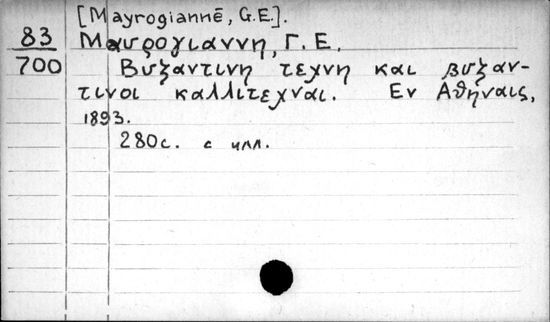 [Mayrogiannē, G.E.].
83 Μαυρογιαννη, Γ. Ε.
700 Βυζαντινη τεχνη και βυζαν-
τινοι καλλιτεχναι. Εν Αθηναις,
1893.
280с. с илл.